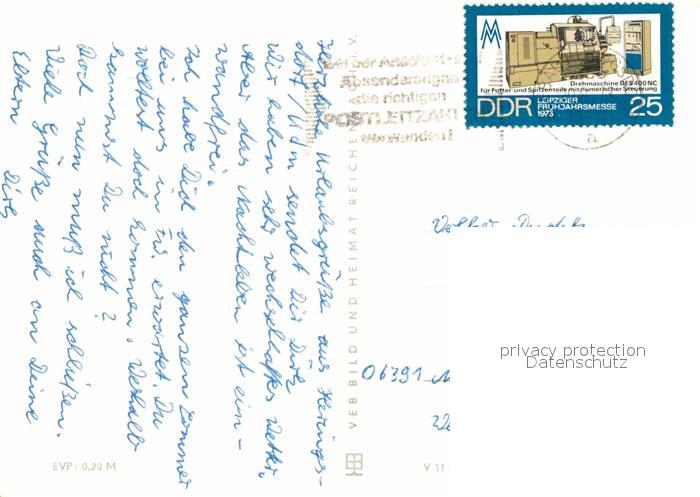 Herzliche Urlaubsgrüße aus Herings-
dorf Udm sendet Dir Dirk
Wir haben sehr wechselhaftes Wetter.
Aber das Nachtleben ist ein-
wandfrei.
Ich habe Dich den ganzen Sommer
bei uns in erwartet. Du
wolltest doch kommen. Weshalb
kommst Du nicht?
Doch nun muß ich schließen.
Viele Grüße auch an Deine
Eltern Dirk
EVP: 0,20 M
VEB BILD UND HEIMAT REICHENBACH I. V.
V 11
bei der Anschrift
Absenderangabe
die richtigen
POSTLEITZAHLEN
verwenden!
MM
Drehmaschine DFS 400 NC
für Futter- und Spitzenteile mit numerischer Steuerung
DDR LEIPZIGER FRÜHJAHRSMESSE 1973 25
06391
privacy protection
Datenschutz